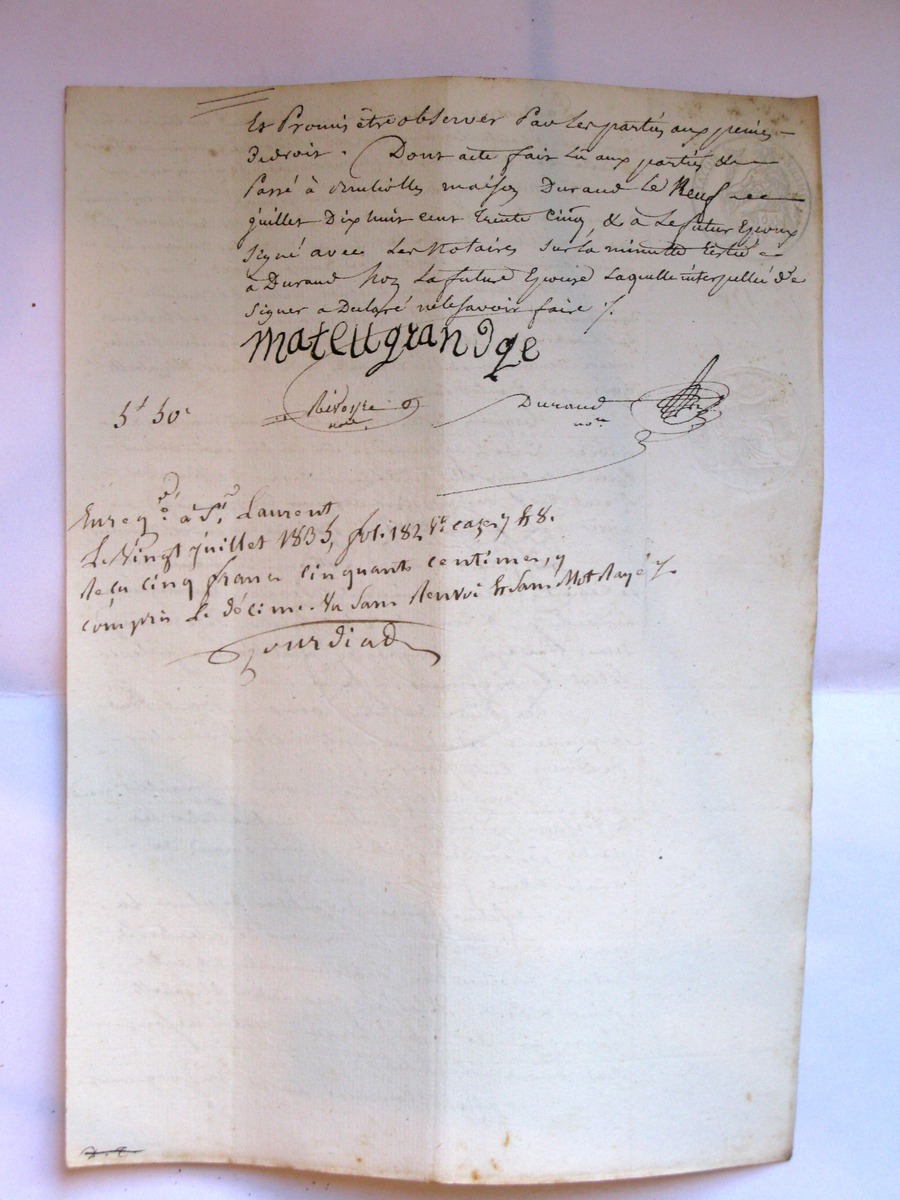 Et Promis être observer Par Les parties aux peines
de droit. Dont acte fait Lû aux parties &
Passé à maison Durand le Neuf
juillet Dix huit cent trente Cinq, & a Le futur Epoux
signé avec Les Notaires sur la minutte restée
a Durand Noe La future Epouse Laquelle interpellée de
signer a Déclaré ne le savoir faire /.
mateu grandge
5f 50c
Durand
noe
Enregé. à St. Laurent
Le Vingt juillet 1835, fol. 182 Vo case 7 & 8.
Reçu cinq francs cinquante centimes, y
compris Le décime. Vu Sans Renvoi Et Sans Mot Rayé /.